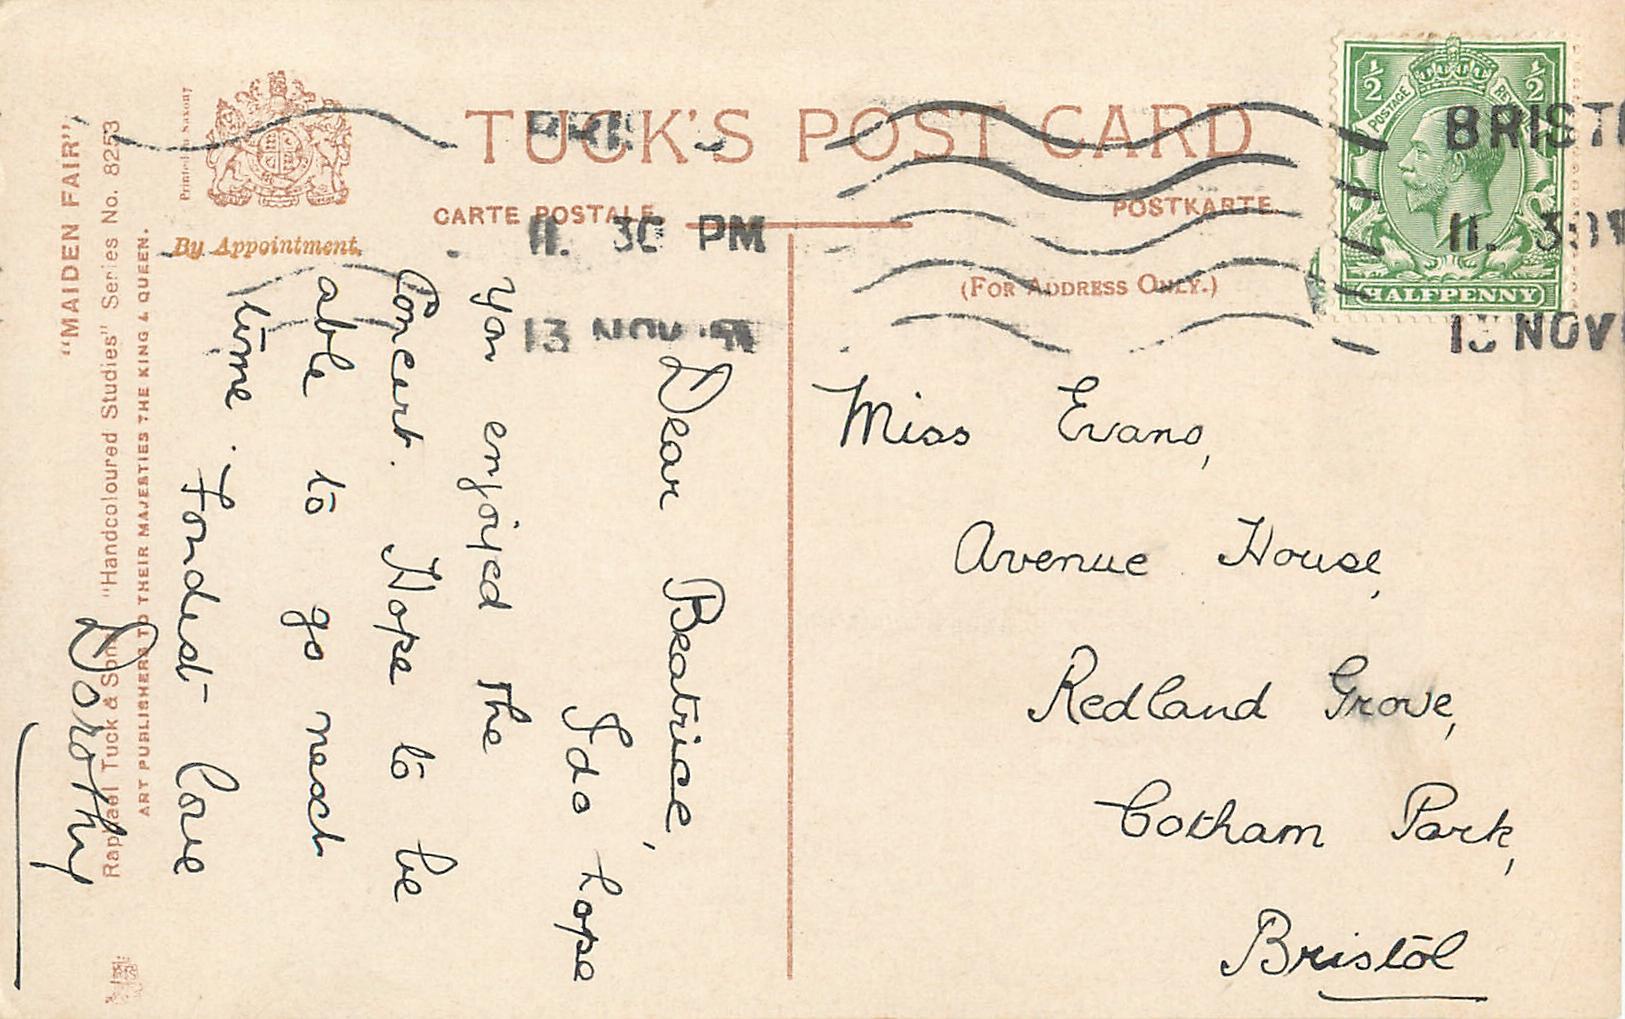 TUCK'S POST CARD
CARTE POSTALE
POSTKARTE
(FOR ADDRESS ONLY.)
By Appointment.
Printed in Saxony
"MAIDEN FAIR"
Raphael Tuck & Sons "Handcoloured Studies" Series No. 8253
ART PUBLISHERS TO THEIR MAJESTIES THE KING & QUEEN.
11. 30 PM
13 NOV
½ ½
POSTAGE
HALFPENNY
BRISTO
11. 30
13 NOV
Dear Beatrice,
I do hope
you enjoyed the
Concert. Hope to be
able to go next
time. Fondest love
Dorothy
Miss Evans,
Avenue House,
Redland Grove,
Cotham Park,
Bristol